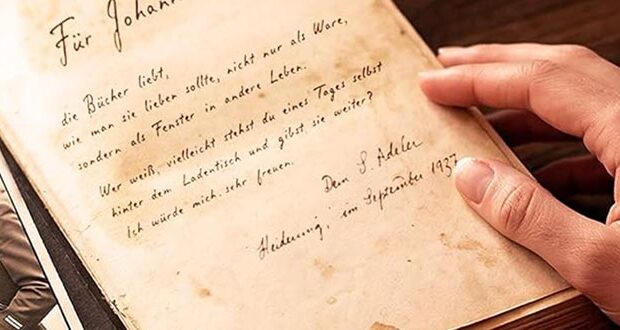 Für Johann
die Bücher liebt,
wie man sie lieben sollte, nicht nur als Ware,
sondern als Fenster in andere Leben.
Wer weiß, vielleicht stehst du eines Tages selbst
hinter dem Ladentisch und gibst sie weiter?
Ich würde mich sehr freuen.
Dein S. Adeler
im September 1937